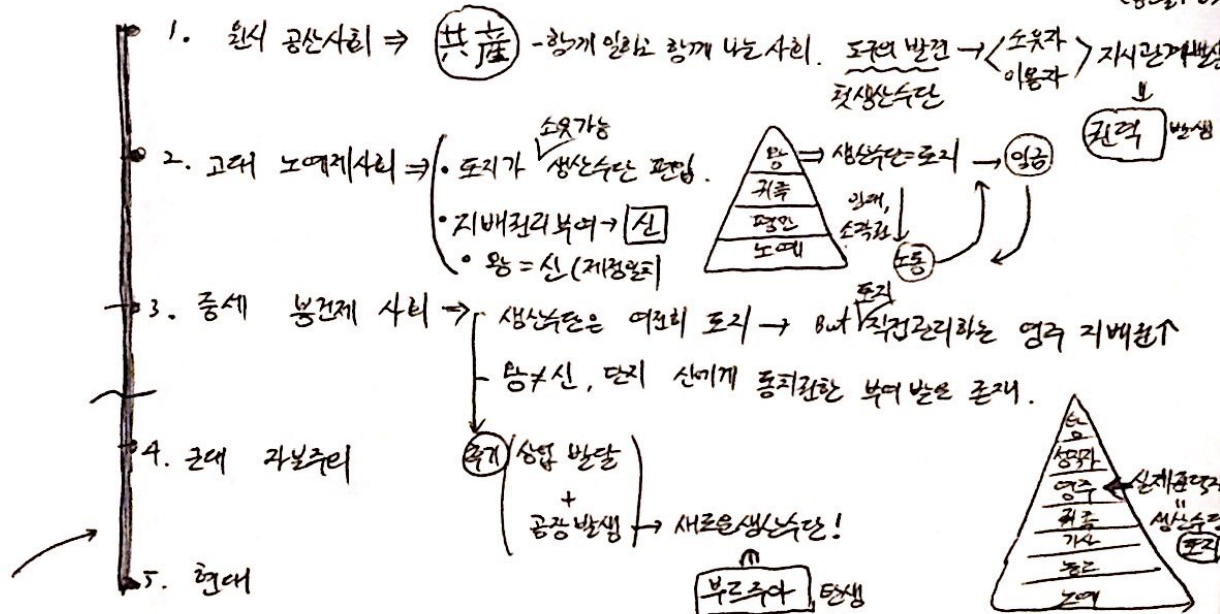 1. 원시 공산사회 ⇒ 共産 - 함께 일하고 함께 나눈 사회. 도구의 발견 → 소유자 이용자 지시관계발생
첫생산수단
↓
권력 발생
소유가능
2. 고대 노예제사회 ⇒ · 토지가 ✓ 생산수단 편입.
· 지배권리부여 → 신
· 왕 = 신 (제정일치
왕 ⇒ 생산수단=토지 →
귀족
평민
노예
노동
토지
3. 중세 봉건제 사회 → 생산수단은 여전히 토지 → But ✓ 직접관리하는 영주 지배권↑
- 왕≠신, 단지 신에게 통치권한 부여 받은 존재.
4. 근대 자본주의
후기 상업 발달
+
공장 발생 → 새로운생산수단!
⇑
부르주아 탄생
5. 현대
왕
성직자
영주 ←
귀족
기사
농노
노예
=
생산수단
토지